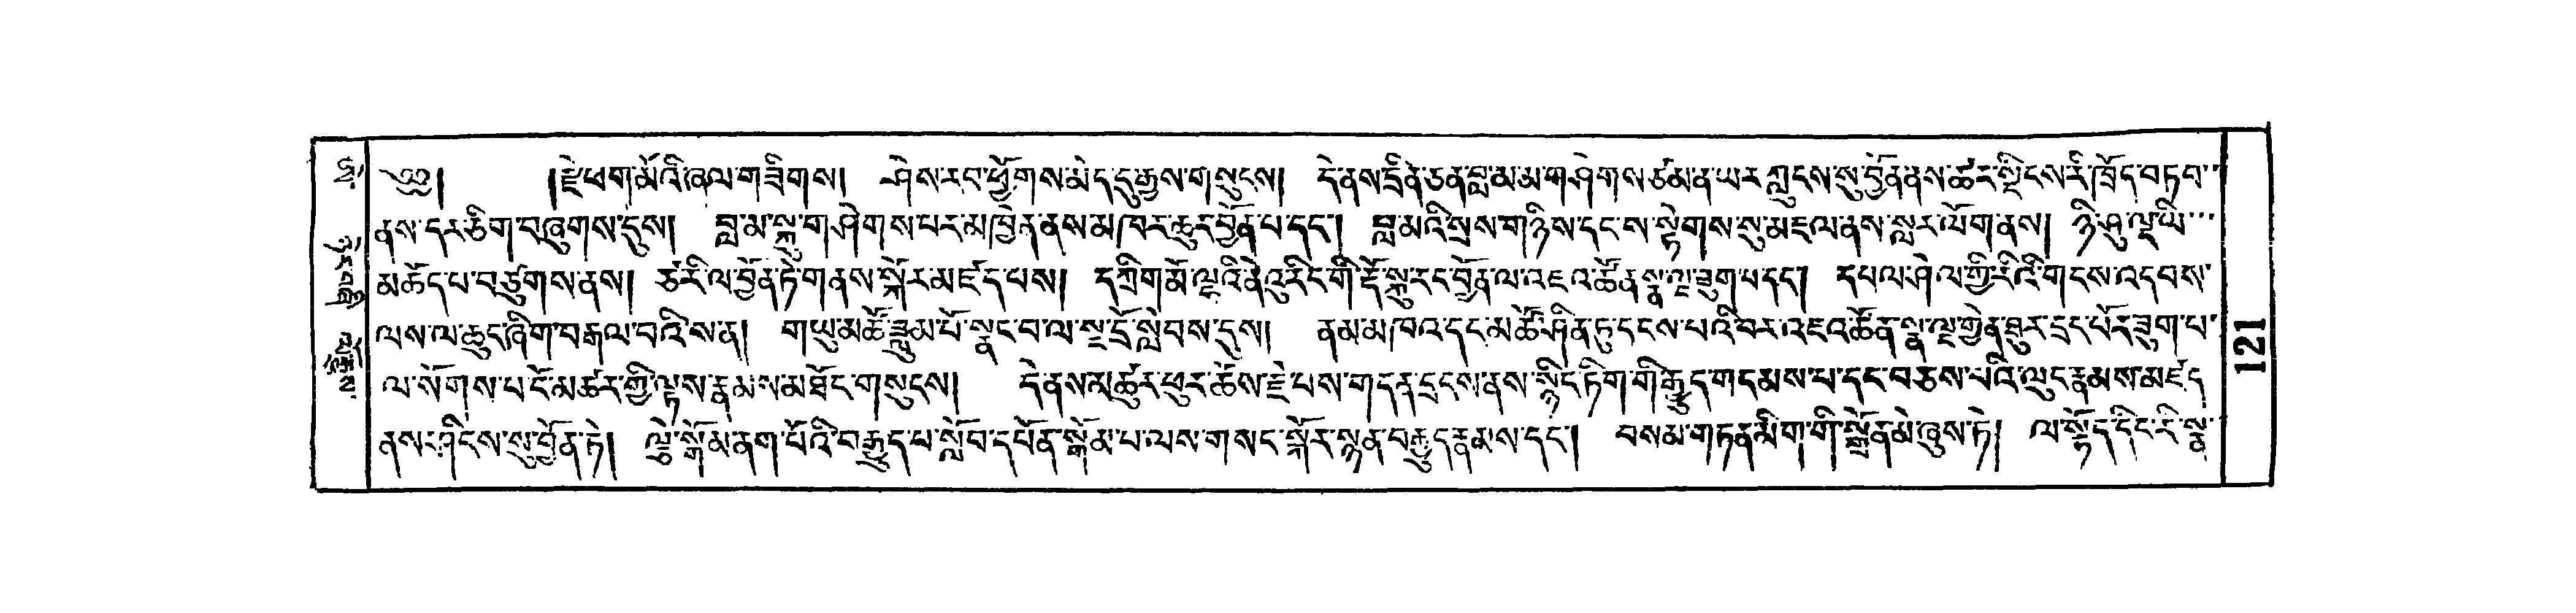 ༄༅། །རྗེ་ཕག་མོའི་ཞལ་གཟིགས། ཤེས་རབ་ཕྱོགས་མེད་དུ་རྒྱས་གསུངས། དེ་ནས་དྲིན་ཅན་བླ་མ་མ་གཤེགས་ཙམ་ན་ཡར་ཀླུངས་སུ་བྱོན་ནས་ཚར་སྡིངས་རི་ཁྲོད་བཏབ་
ནས་དར་ཅིག་བཞུགས་དུས། བླ་མ་སྐུ་གཤེགས་པར་མཁྱེན་ནས་མཁར་ཆུར་བྱོན་པ་དང་། བླ་མའི་སྲས་གཉིས་དང་ས་སྟེགས་སུ་མཇལ་ནས་སླར་ལོག་ནས། ཉི་ཤུ་ལྔ་ཡི་
མཆོད་པ་བཙུགས་ནས། ཙ་རི་ལ་བྱོན་ཏེ་གནས་སྐོར་མཛད་པས། དཀྲིག་མོ་ལྷའི་ནེའུ་རིང་གི་རྡོ་སྐུ་རང་བྱོན་ལ་འཇའ་ཚོན་སྣ་ལྔ་ཟུག་པ་དང་། དཔལ་ཤེལ་གྱི་རིའི་གདས་འདབས་
ལས་ལ་ཆུང་ཞིག་བརྒལ་བའི་ས་ན། གཡུ་མཚོ་ཟླུམ་པོ་སྣང་བ་ལ་སྔ་དྲོ་སླེབས་དུས། ནམ་མཁའ་དང་མཚོ་ཤིན་ཏུ་དྭངས་པའི་བར་འཇའ་ཚོན་སྣ་ལྔ་གྱེན་ཐུར་དྲང་པོར་ཟུག་པ་
ལ་སོགས་པ་ངོ་མཚར་གྱི་ལྟས་རྣམས་མཐོང་གསུངས། དེ་ནས་མཚུར་ཕུར་ཆོས་རྗེ་པས་གདན་དྲངས་ནས་སྙིང་ཏིག་གི་རྒྱུད་གདམས་པ་དང་བཅས་པའི་ལུང་རྣམས་མཛད་
ནས་ཤིངས་སུ་བྱོན་ཏེ། ལྕེ་སྒོམ་ནག་པོའི་བརྒྱུད་པ་སློབ་དཔོན་སྒོམ་པ་ལས་གསང་སྐོར་སྙན་བརྒྱུད་རྣམས་དང་། བསམ་གཏན་མིག་གི་སྒྲོན་མེ་ཞུས་ཏེ། ལ་སྟོད་དིང་རི་སྣ་
121